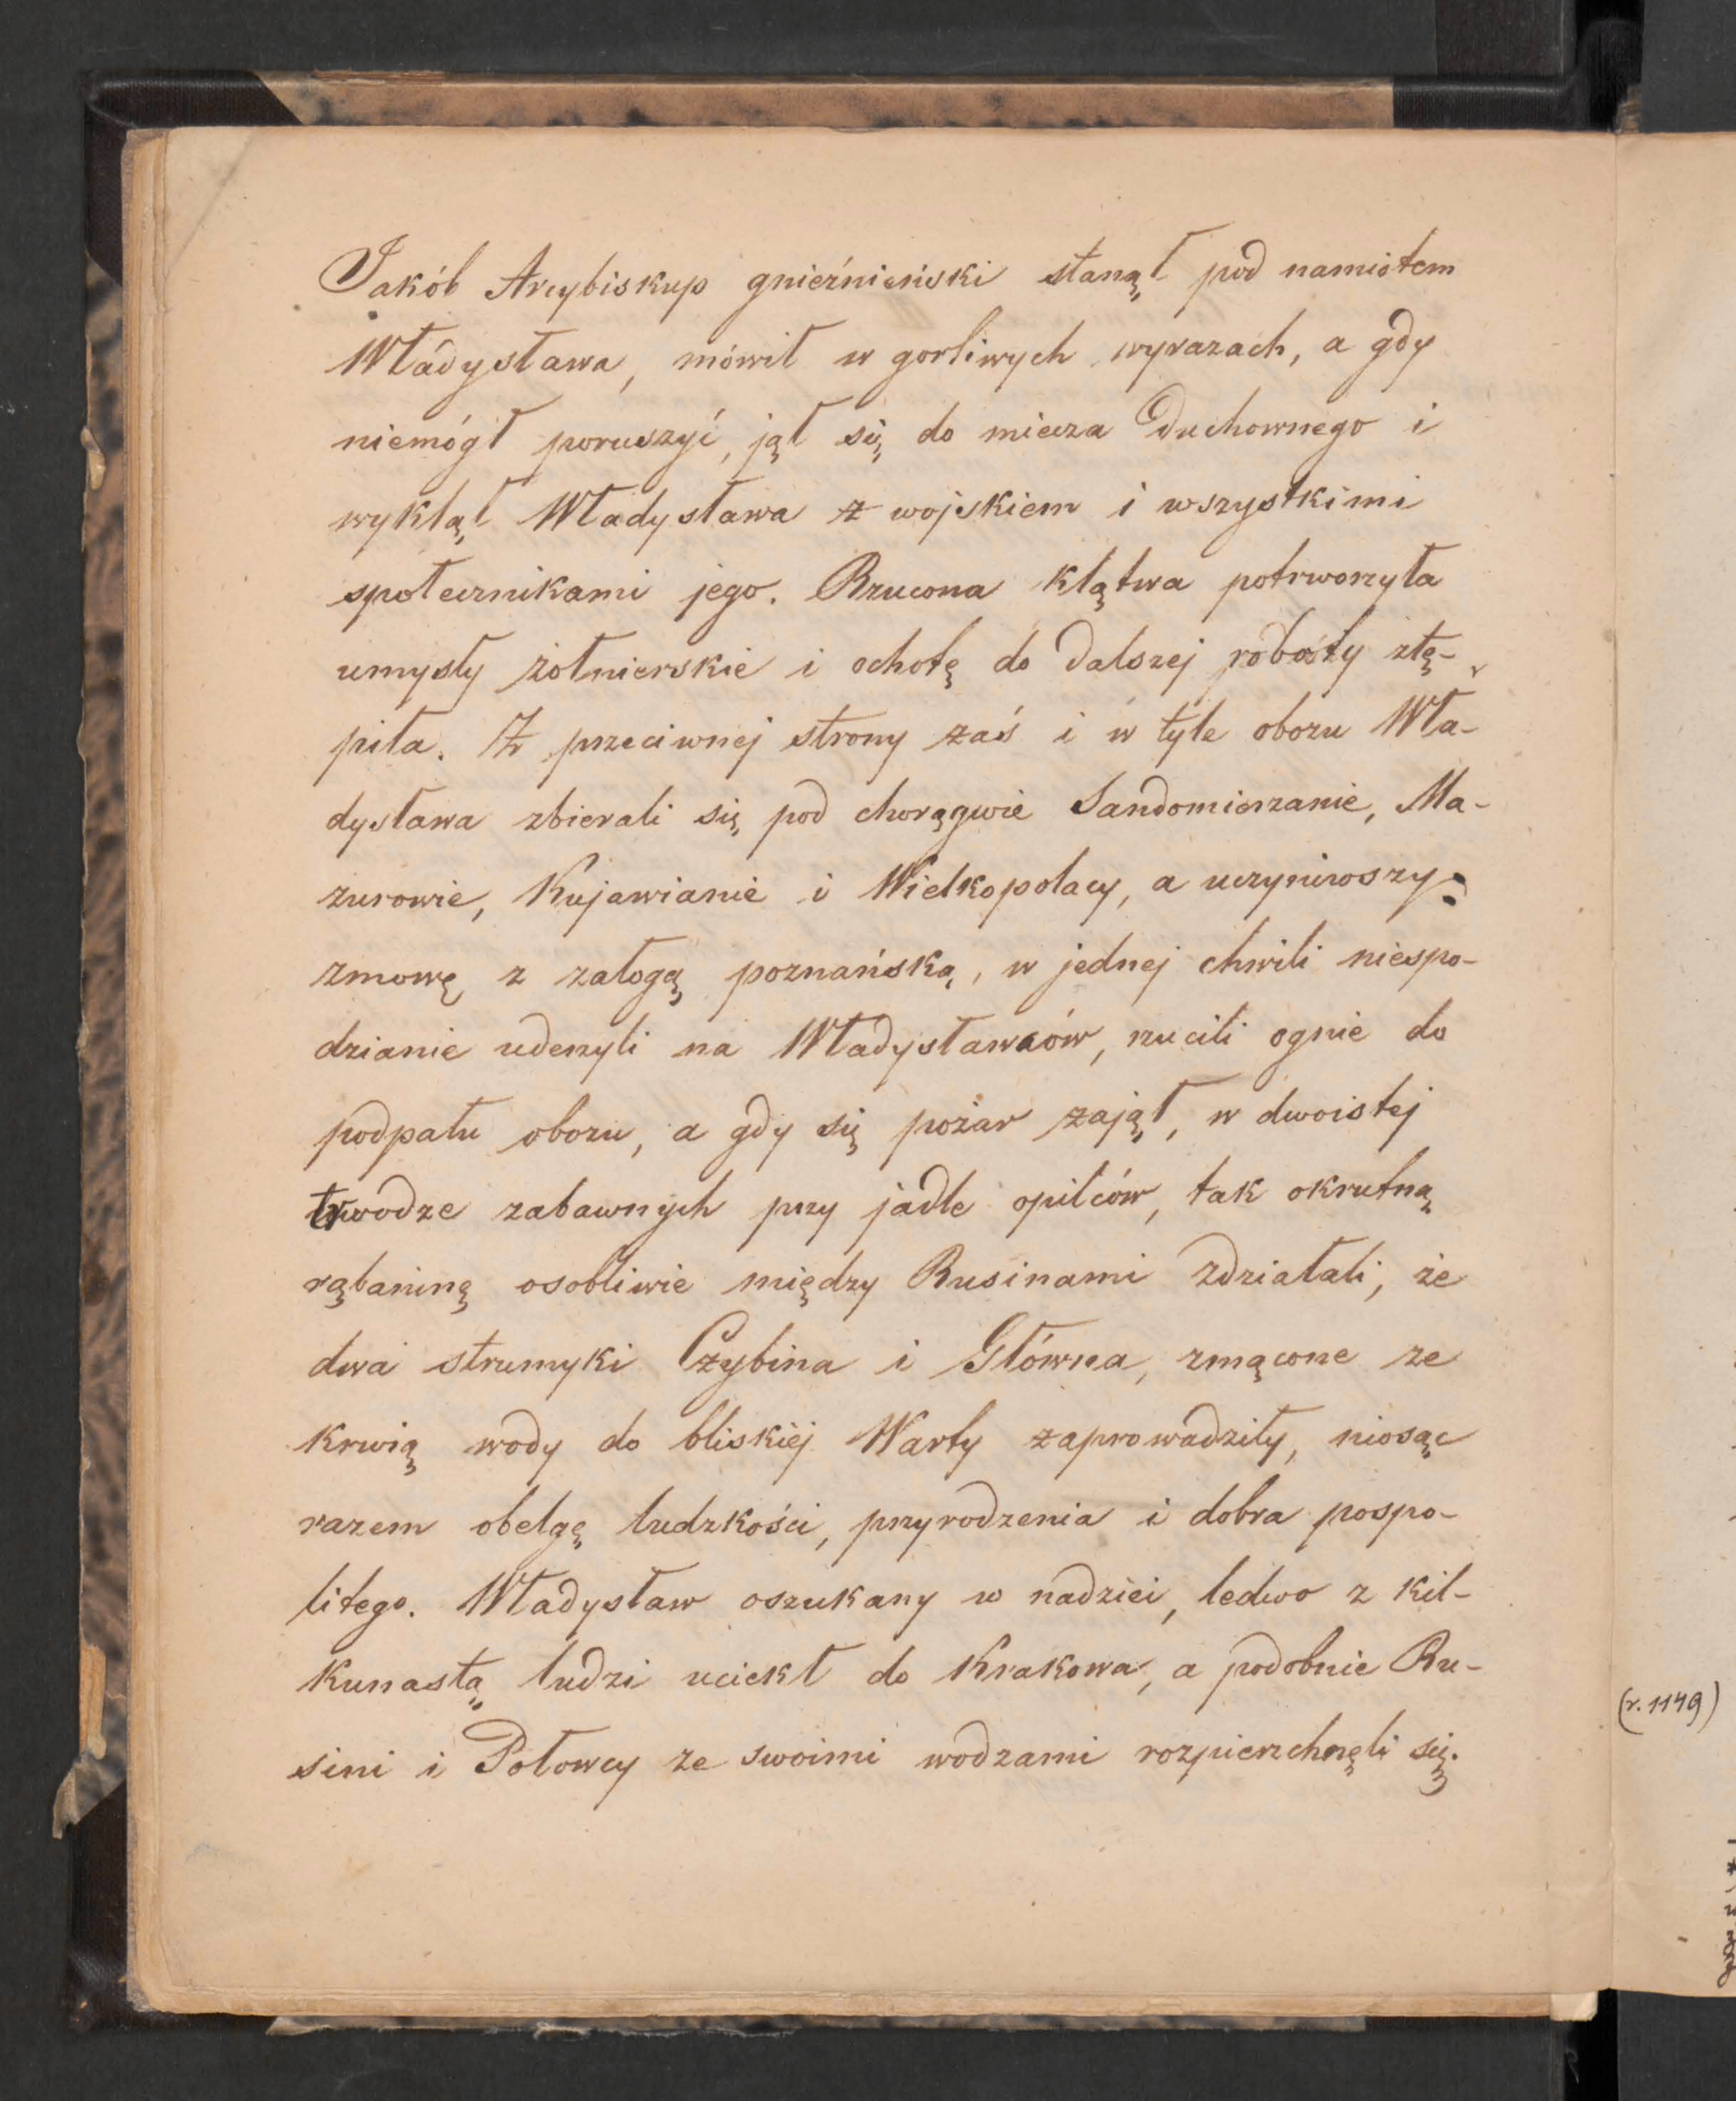 Jakób Arcybiskup gnieźnieński stanął pod namiotem
Władysława, mówił w gorliwych wyrazach, a gdy
niemógł poruszyć, jął się do miecza duchownego i
wyklął Władysława z wojskiem i wszystkimi
społecznikami jego. Rzucona klątwa potrworzyła
umysły żołnierskie i ochotę do dalszej roboty stę-
piła. Z przeciwnej strony zaś i w tyle obozu Wła-
dysława zbierali się pod chorągwie Sandomierzanie, Ma-
zurowie, Kujawianie i Wielkopolacy, a uczyniwszy
zmowę z załogą poznańską, w jednej chwili niespo-
dzianie uderzyli na Władysławców, rzucili ognie do
podpału obozu, a gdy się pożar zajął, w dwoistej
trwodze zabawnych przy jadle opilców, tak okrutną
rąbaninę osobliwie między Rusinami zdziałali, że
dwa strumyki Czybina i Główna, zmącone ze
krwią wody do bliskiéj Warty zaprowadziły, niosąc
razem obelgę ludzkości, przyrodzenia i dobra pospo-
litego. Władysław oszukany w nadziei, ledwo z kil-
kunastą ludzi uciekł do Krakowa, a podobnie Ru-
sini i Połowcy ze swoimi wodzami rozpierzchnęli się.
(r. 1149)